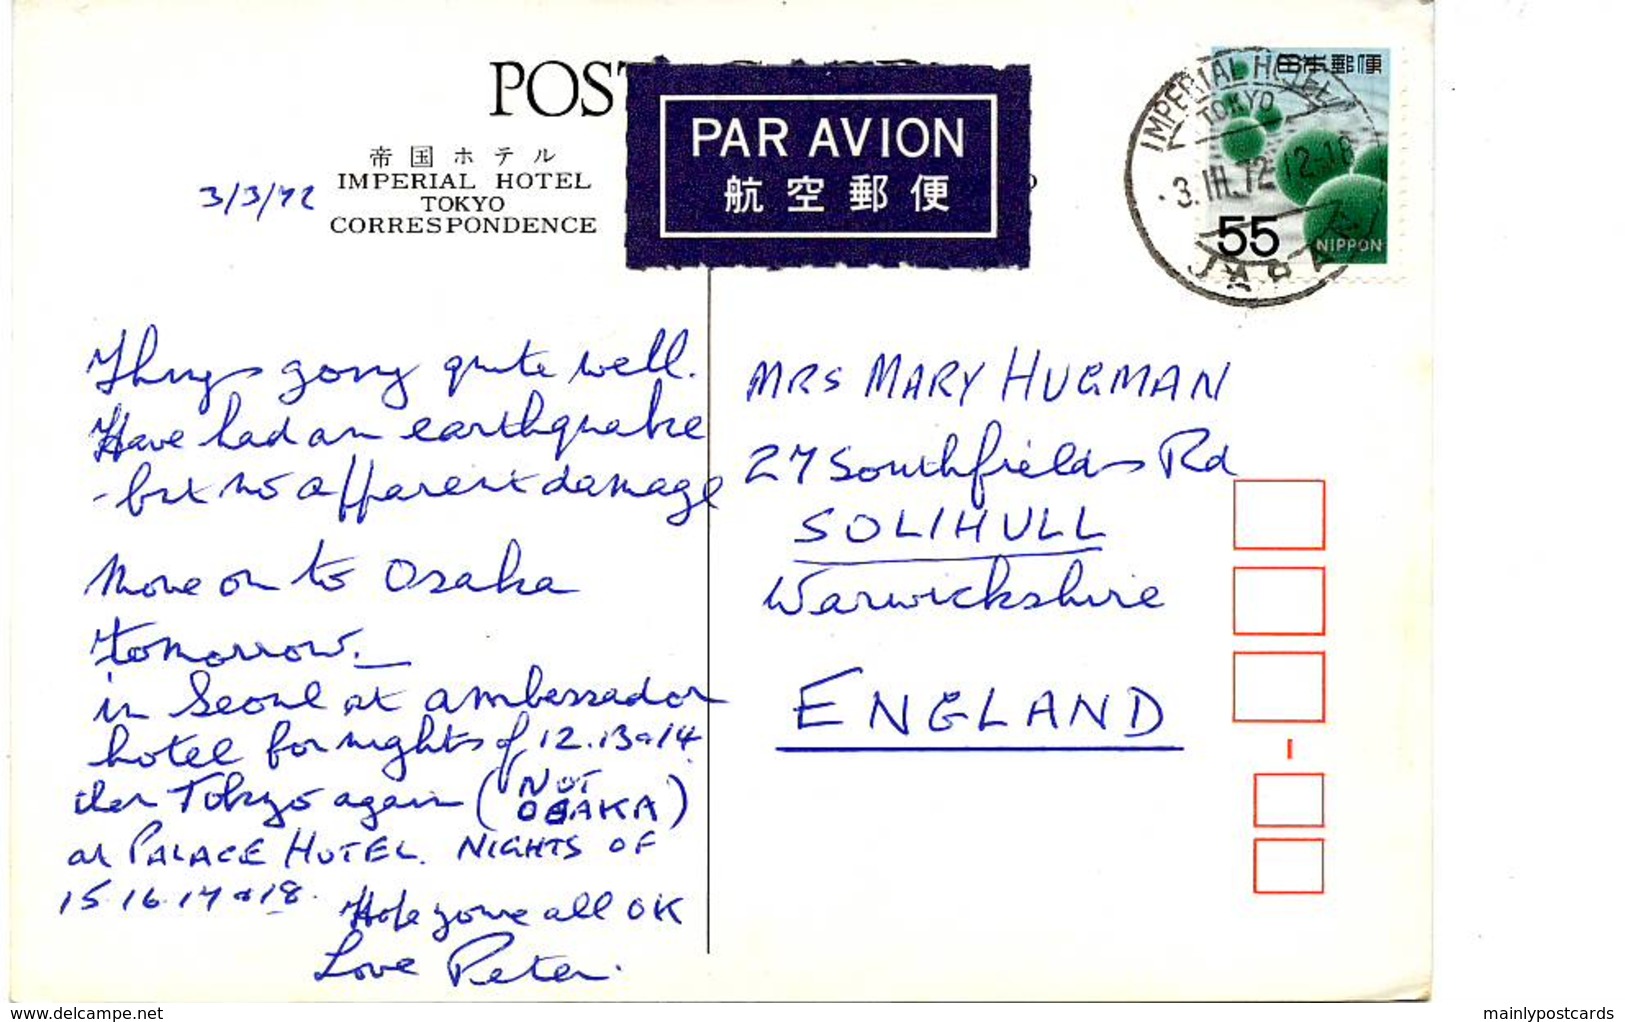 POST
PAR AVION
航空郵便
帝国ホテル
IMPERIAL HOTEL
TOKYO
CORRESPONDENCE
3/3/72
IMPERIAL HOTEL
TOKYO
3.III.72 12-18
JAPAN
日本郵便
55
NIPPON
Things going quite well.
Have had an earthquake
- but no apparent damage
Move on to Osaka
tomorrow.
in Seoul at ambassador
hotel for nights of 12.13 & 14
then Tokyo again (NOT
OSAKA)
at PALACE HOTEL. NIGHTS OF
15.16.17 & 18.
Hope you're all OK
Love Peter.
MRS MARY HUGMAN
27 Southfields Rd
SOLIHULL
Warwickshire
ENGLAND
www.delcampe.net
mainlypostcards